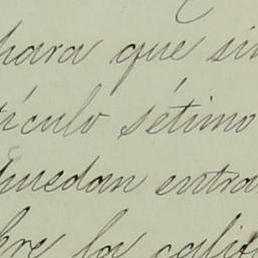 para que sir
tículo sétimo
quedan entra
bre la calif